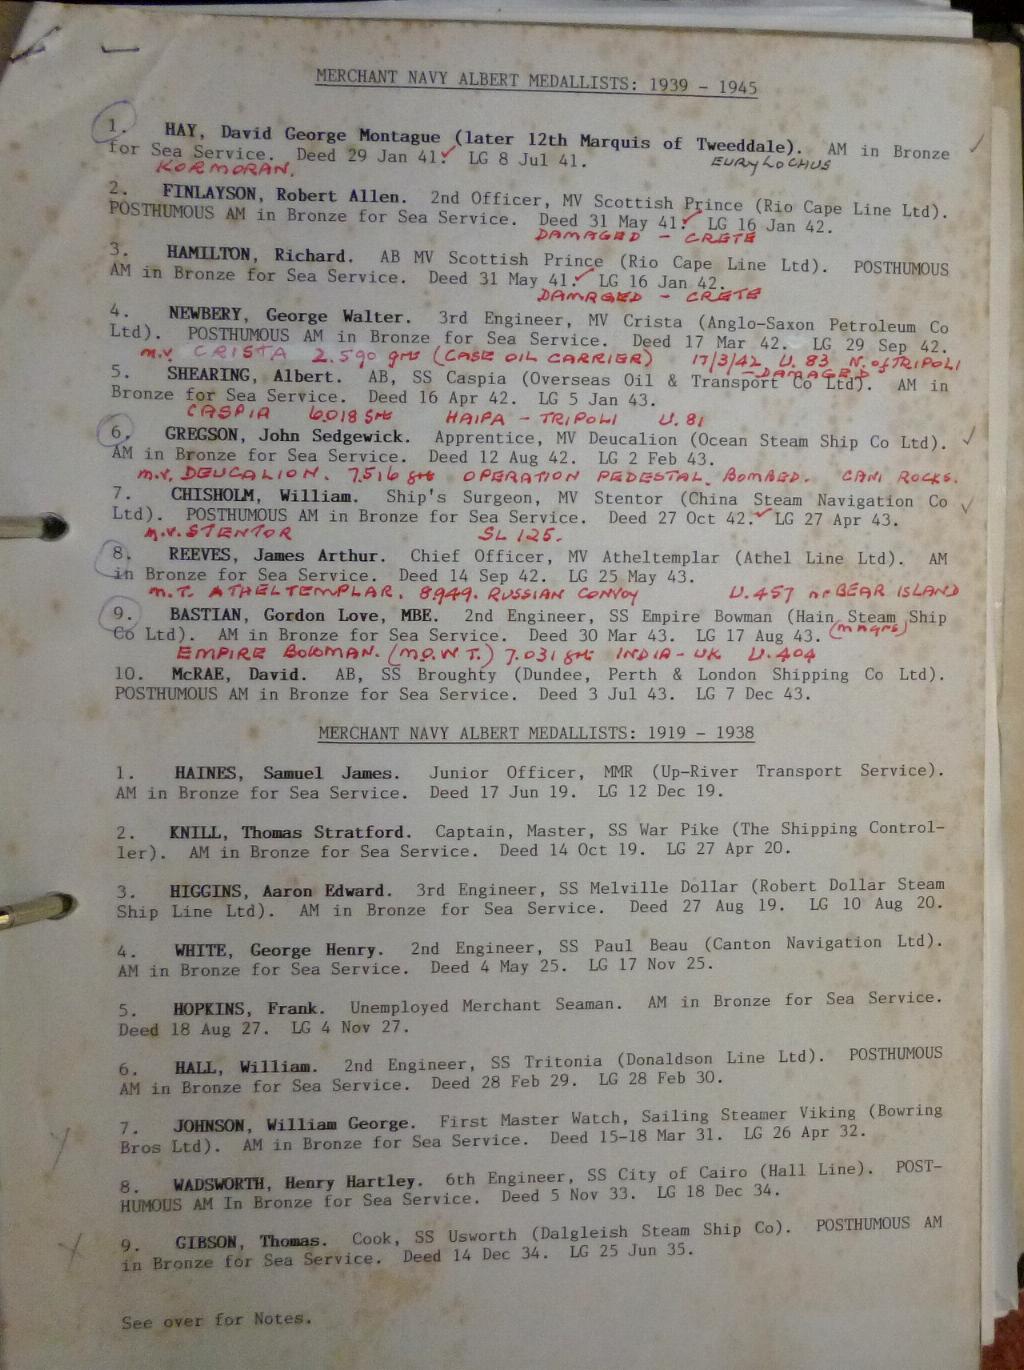 MERCHANT NAVY ALBERT MEDALLISTS: 1939 - 1945
1. HAY, David George Montague (later 12th Marquis of Tweeddale). AM in Bronze
for Sea Service. Deed 29 Jan 41. LG 8 Jul 41. EURYLOCHUS
KORMORAN.
2. FINLAYSON, Robert Allen. 2nd Officer, MV Scottish Prince (Rio Cape Line Ltd).
POSTHUMOUS AM in Bronze for Sea Service. Deed 31 May 41. LG 16 Jan 42.
DAMAGED - CRETE
3. HAMILTON, Richard. AB MV Scottish Prince (Rio Cape Line Ltd). POSTHUMOUS
AM in Bronze for Sea Service. Deed 31 May 41. LG 16 Jan 42.
DAMAGED - CRETE
4. NEWBERY, George Walter. 3rd Engineer, MV Crista (Anglo-Saxon Petroleum Co
Ltd). POSTHUMOUS AM in Bronze for Sea Service. Deed 17 Mar 42. LG 29 Sep 42.
M.V. CRISTA 2.590 grs (CASE OIL CARRIER) 17/3/42 U.83 N. of TRIPOLI
- DAMAGED -
5. SHEARING, Albert. AB, SS Caspia (Overseas Oil & Transport Co Ltd). AM in
Bronze for Sea Service. Deed 16 Apr 42. LG 5 Jan 43.
CASPIA 6.018 grs HAIFA - TRIPOLI U.81
6. GREGSON, John Sedgewick. Apprentice, MV Deucalion (Ocean Steam Ship Co Ltd).
AM in Bronze for Sea Service. Deed 12 Aug 42. LG 2 Feb 43.
M.V. DEUCALION. 7.516 grs OPERATION PEDESTAL. BOMBED. CANI ROCKS.
7. CHISHOLM, William. Ship's Surgeon, MV Stentor (China Steam Navigation Co
Ltd). POSTHUMOUS AM in Bronze for Sea Service. Deed 27 Oct 42. LG 27 Apr 43.
M.V. STENTOR SL 125.
8. REEVES, James Arthur. Chief Officer, MV Atheltemplar (Athel Line Ltd). AM
in Bronze for Sea Service. Deed 14 Sep 42. LG 25 May 43.
M.T. ATHELTEMPLAR. 8.949. RUSSIAN CONVOY U.457 nr BEAR ISLAND
9. BASTIAN, Gordon Love, MBE. 2nd Engineer, SS Empire Bowman (Hain Steam Ship
Co Ltd). AM in Bronze for Sea Service. Deed 30 Mar 43. LG 17 Aug 43. (mngrs)
EMPIRE BOWMAN. (M.O.W.T.) 7.031 grs INDIA - UK U.404
10. McRAE, David. AB, SS Broughty (Dundee, Perth & London Shipping Co Ltd).
POSTHUMOUS AM in Bronze for Sea Service. Deed 3 Jul 43. LG 7 Dec 43.
MERCHANT NAVY ALBERT MEDALLISTS: 1919 - 1938
1. HAINES, Samuel James. Junior Officer, MMR (Up-River Transport Service).
AM in Bronze for Sea Service. Deed 17 Jun 19. LG 12 Dec 19.
2. KNILL, Thomas Stratford. Captain, Master, SS War Pike (The Shipping Control-
ler). AM in Bronze for Sea Service. Deed 14 Oct 19. LG 27 Apr 20.
3. HIGGINS, Aaron Edward. 3rd Engineer, SS Melville Dollar (Robert Dollar Steam
Ship Line Ltd). AM in Bronze for Sea Service. Deed 27 Aug 19. LG 10 Aug 20.
4. WHITE, George Henry. 2nd Engineer, SS Paul Beau (Canton Navigation Ltd).
AM in Bronze for Sea Service. Deed 4 May 25. LG 17 Nov 25.
5. HOPKINS, Frank. Unemployed Merchant Seaman. AM in Bronze for Sea Service.
Deed 18 Aug 27. LG 4 Nov 27.
6. HALL, William. 2nd Engineer, SS Tritonia (Donaldson Line Ltd). POSTHUMOUS
AM in Bronze for Sea Service. Deed 28 Feb 29. LG 28 Feb 30.
7. JOHNSON, William George. First Master Watch, Sailing Steamer Viking (Bowring
Bros Ltd). AM in Bronze for Sea Service. Deed 15-18 Mar 31. LG 26 Apr 32.
8. WADSWORTH, Henry Hartley. 6th Engineer, SS City of Cairo (Hall Line). POST-
HUMOUS AM In Bronze for Sea Service. Deed 5 Nov 33. LG 18 Dec 34.
9. GIBSON, Thomas. Cook, SS Usworth (Dalgleish Steam Ship Co). POSTHUMOUS AM
in Bronze for Sea Service. Deed 14 Dec 34. LG 25 Jun 35.
See over for Notes.